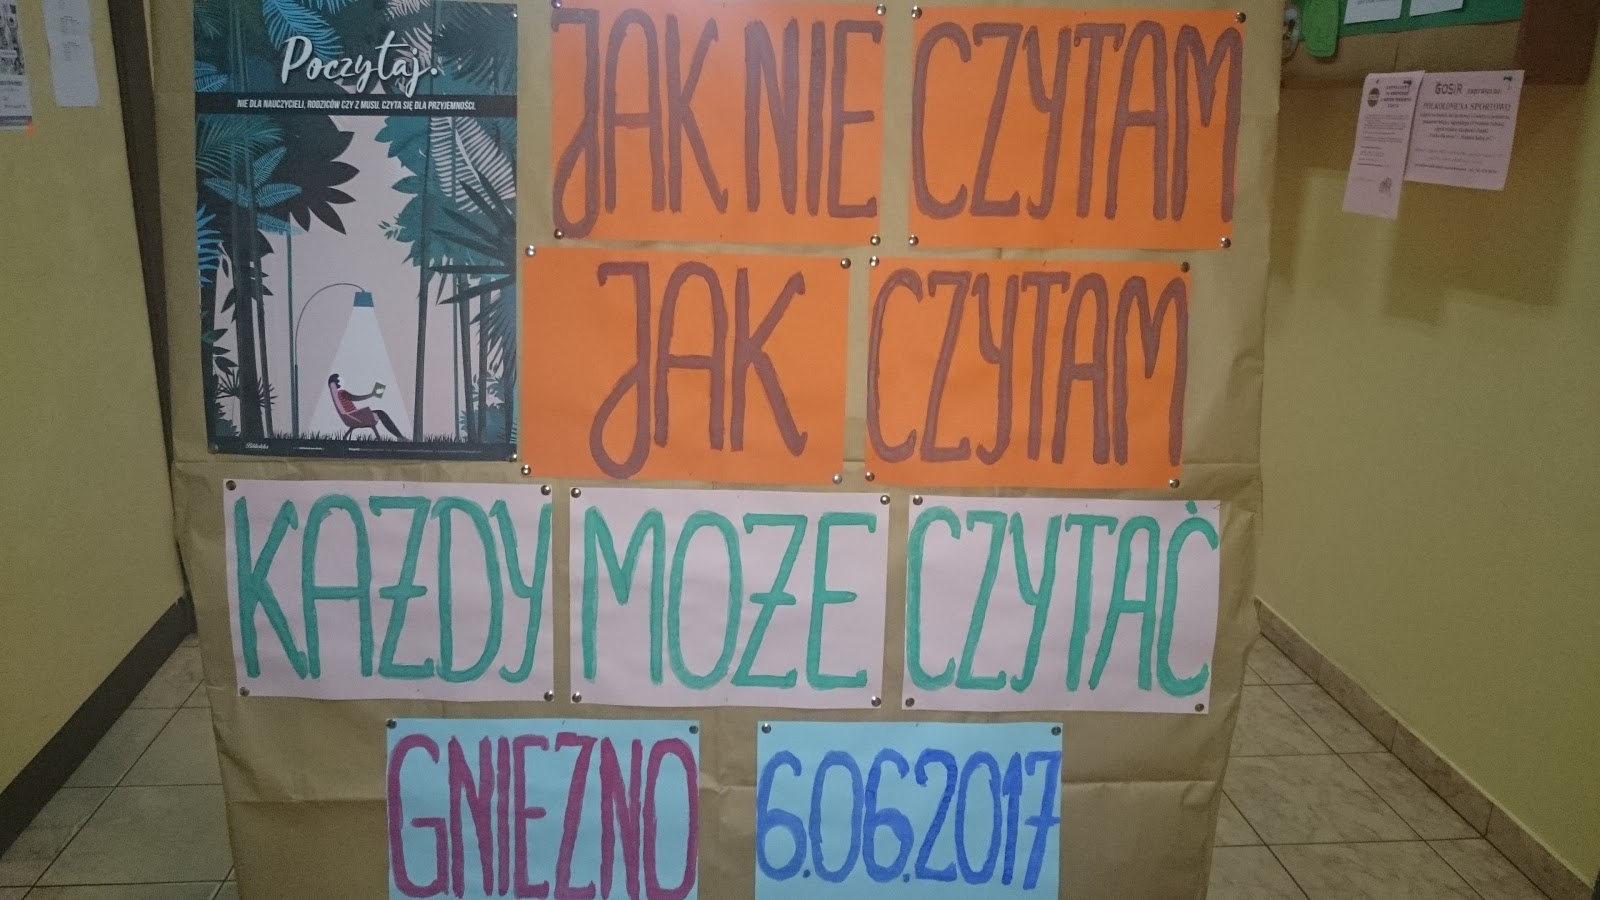 Poczytaj.
NIE DLA NAUCZYCIELI, RODZICÓW CZY Z MUSU. CZYTA SIĘ DLA PRZYJEMNOŚCI.
JAK NIE CZYTAM
JAK CZYTAM
KAŻDY MOŻE CZYTAĆ
GNIEZNO 6.06.2017
GOSiR zaprasza na:
PÓŁKOLONIA SPORTOWO